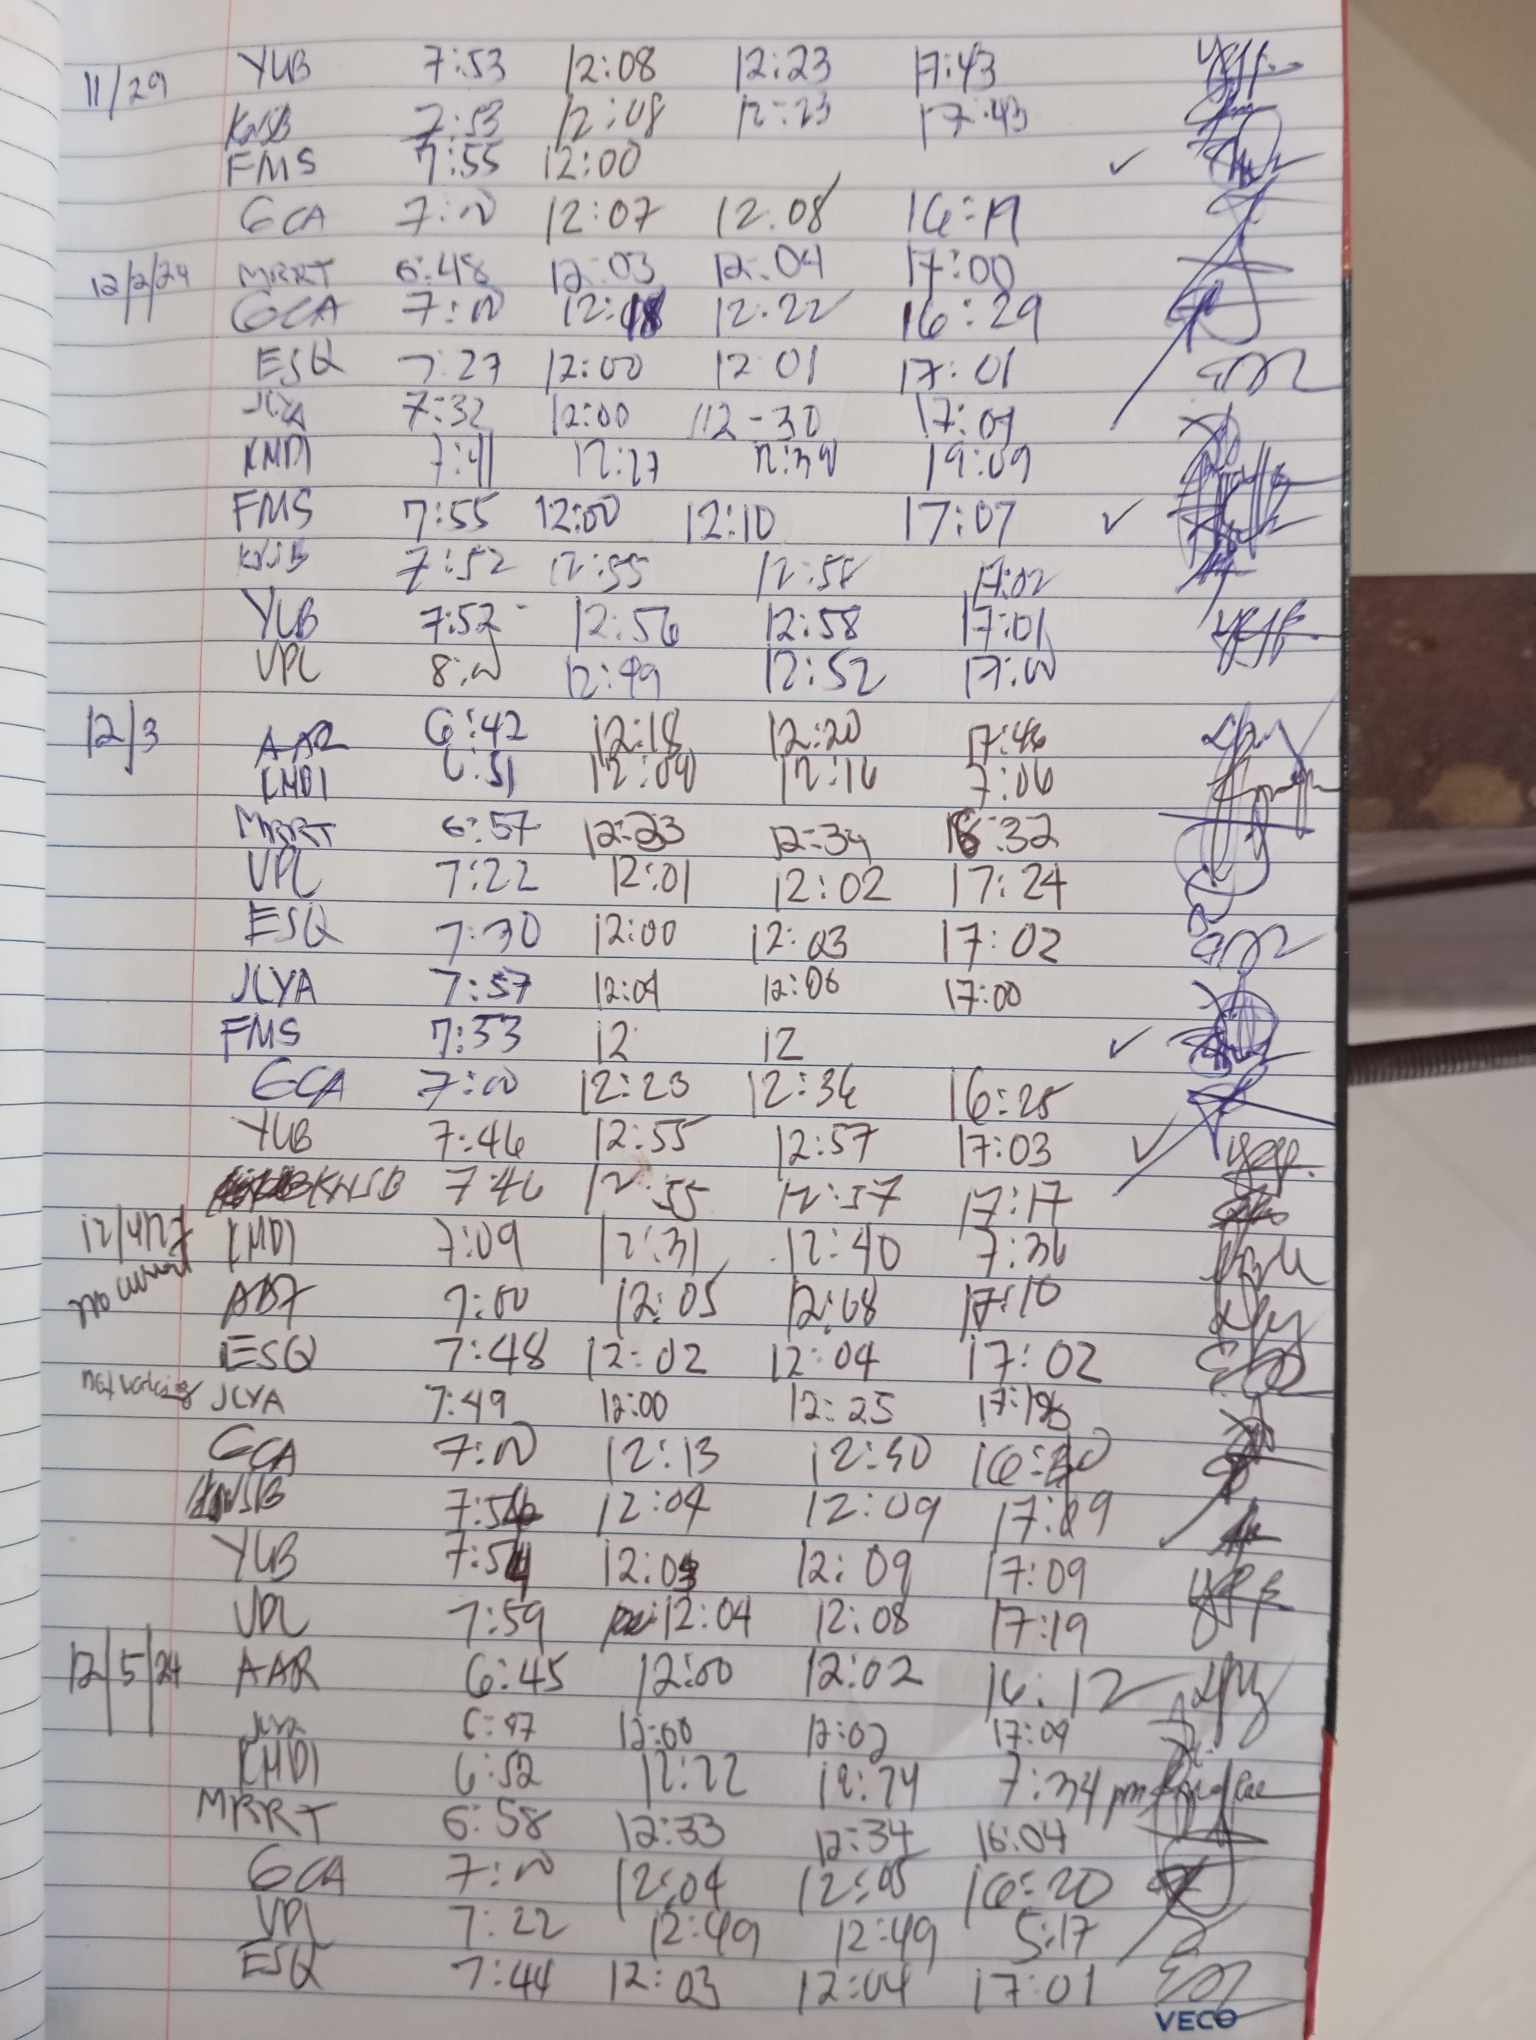 11/29 YLB 7:53 12:08 12:23 17:43
KNSB 7:53 12:08 12:23 17:43
FMS 7:55 12:00 ✓
GCA 7:00 12:07 12.08 16:19
12/2/24 MRRT 6:48 12:03 12:04 17:00
GCA 7:00 12:18 12.22 16:29
ESQ 7:27 12:00 12 01 17:01
JCYA 7:32 12:00 12-30 17:09
KMDI 7:41 12:27 12:39 19:09
FMS 7:55 12:00 12:10 17:07 ✓
KNSB 7:52 12:55 12:58 17:02
YLB 7:52 12:56 12:58 17:01
VPL 8:00 12:49 12:52 17:00
12/3 AAR 6:42 12:18 12:20 17:46
KMDI 6:51 12:09 12:16 7:06
MRRT 6:57 12:23 12:34 16:32
VPL 7:22 12:01 12:02 17:24
ESQ 7:30 12:00 12:03 17:02
JCYA 7:57 12:04 12:06 17:00
FMS 7:33 12 12 ✓
GCA 7:00 12:23 12:36 16:25
YLB 7:46 12:55 12:57 17:03 ✓
KNSB 7:46 12:55 12:57 17:17
KMDI 7:09 12:31 12:40 7:36
no current 7:00 12:05 12:08 17:10
ESQ 7:48 12:02 12:04 17:02
not working JCYA 7:49 12:00 12:25
GCA 7:00 12:13 12:30
KNSB 12:04 12:09 17:09
YLB 7:54 12:09 17:09
VPL 7:59 12:04 12:08 17:19
12/5/24 AAR 6:45 12:00 12:02 16:12
JCYA 6:47 12:00 12:02 17:09
KMDI 6:52 12:22 12:24 7:34 pm
MRRT 6:58 12:33 12:34 16:04
GCA 7:00 12:04 12:05 16:20
VPL 7:22 12:49 12:49 5:17
ESQ 7:44 12:03 12:04 17:01
VECO